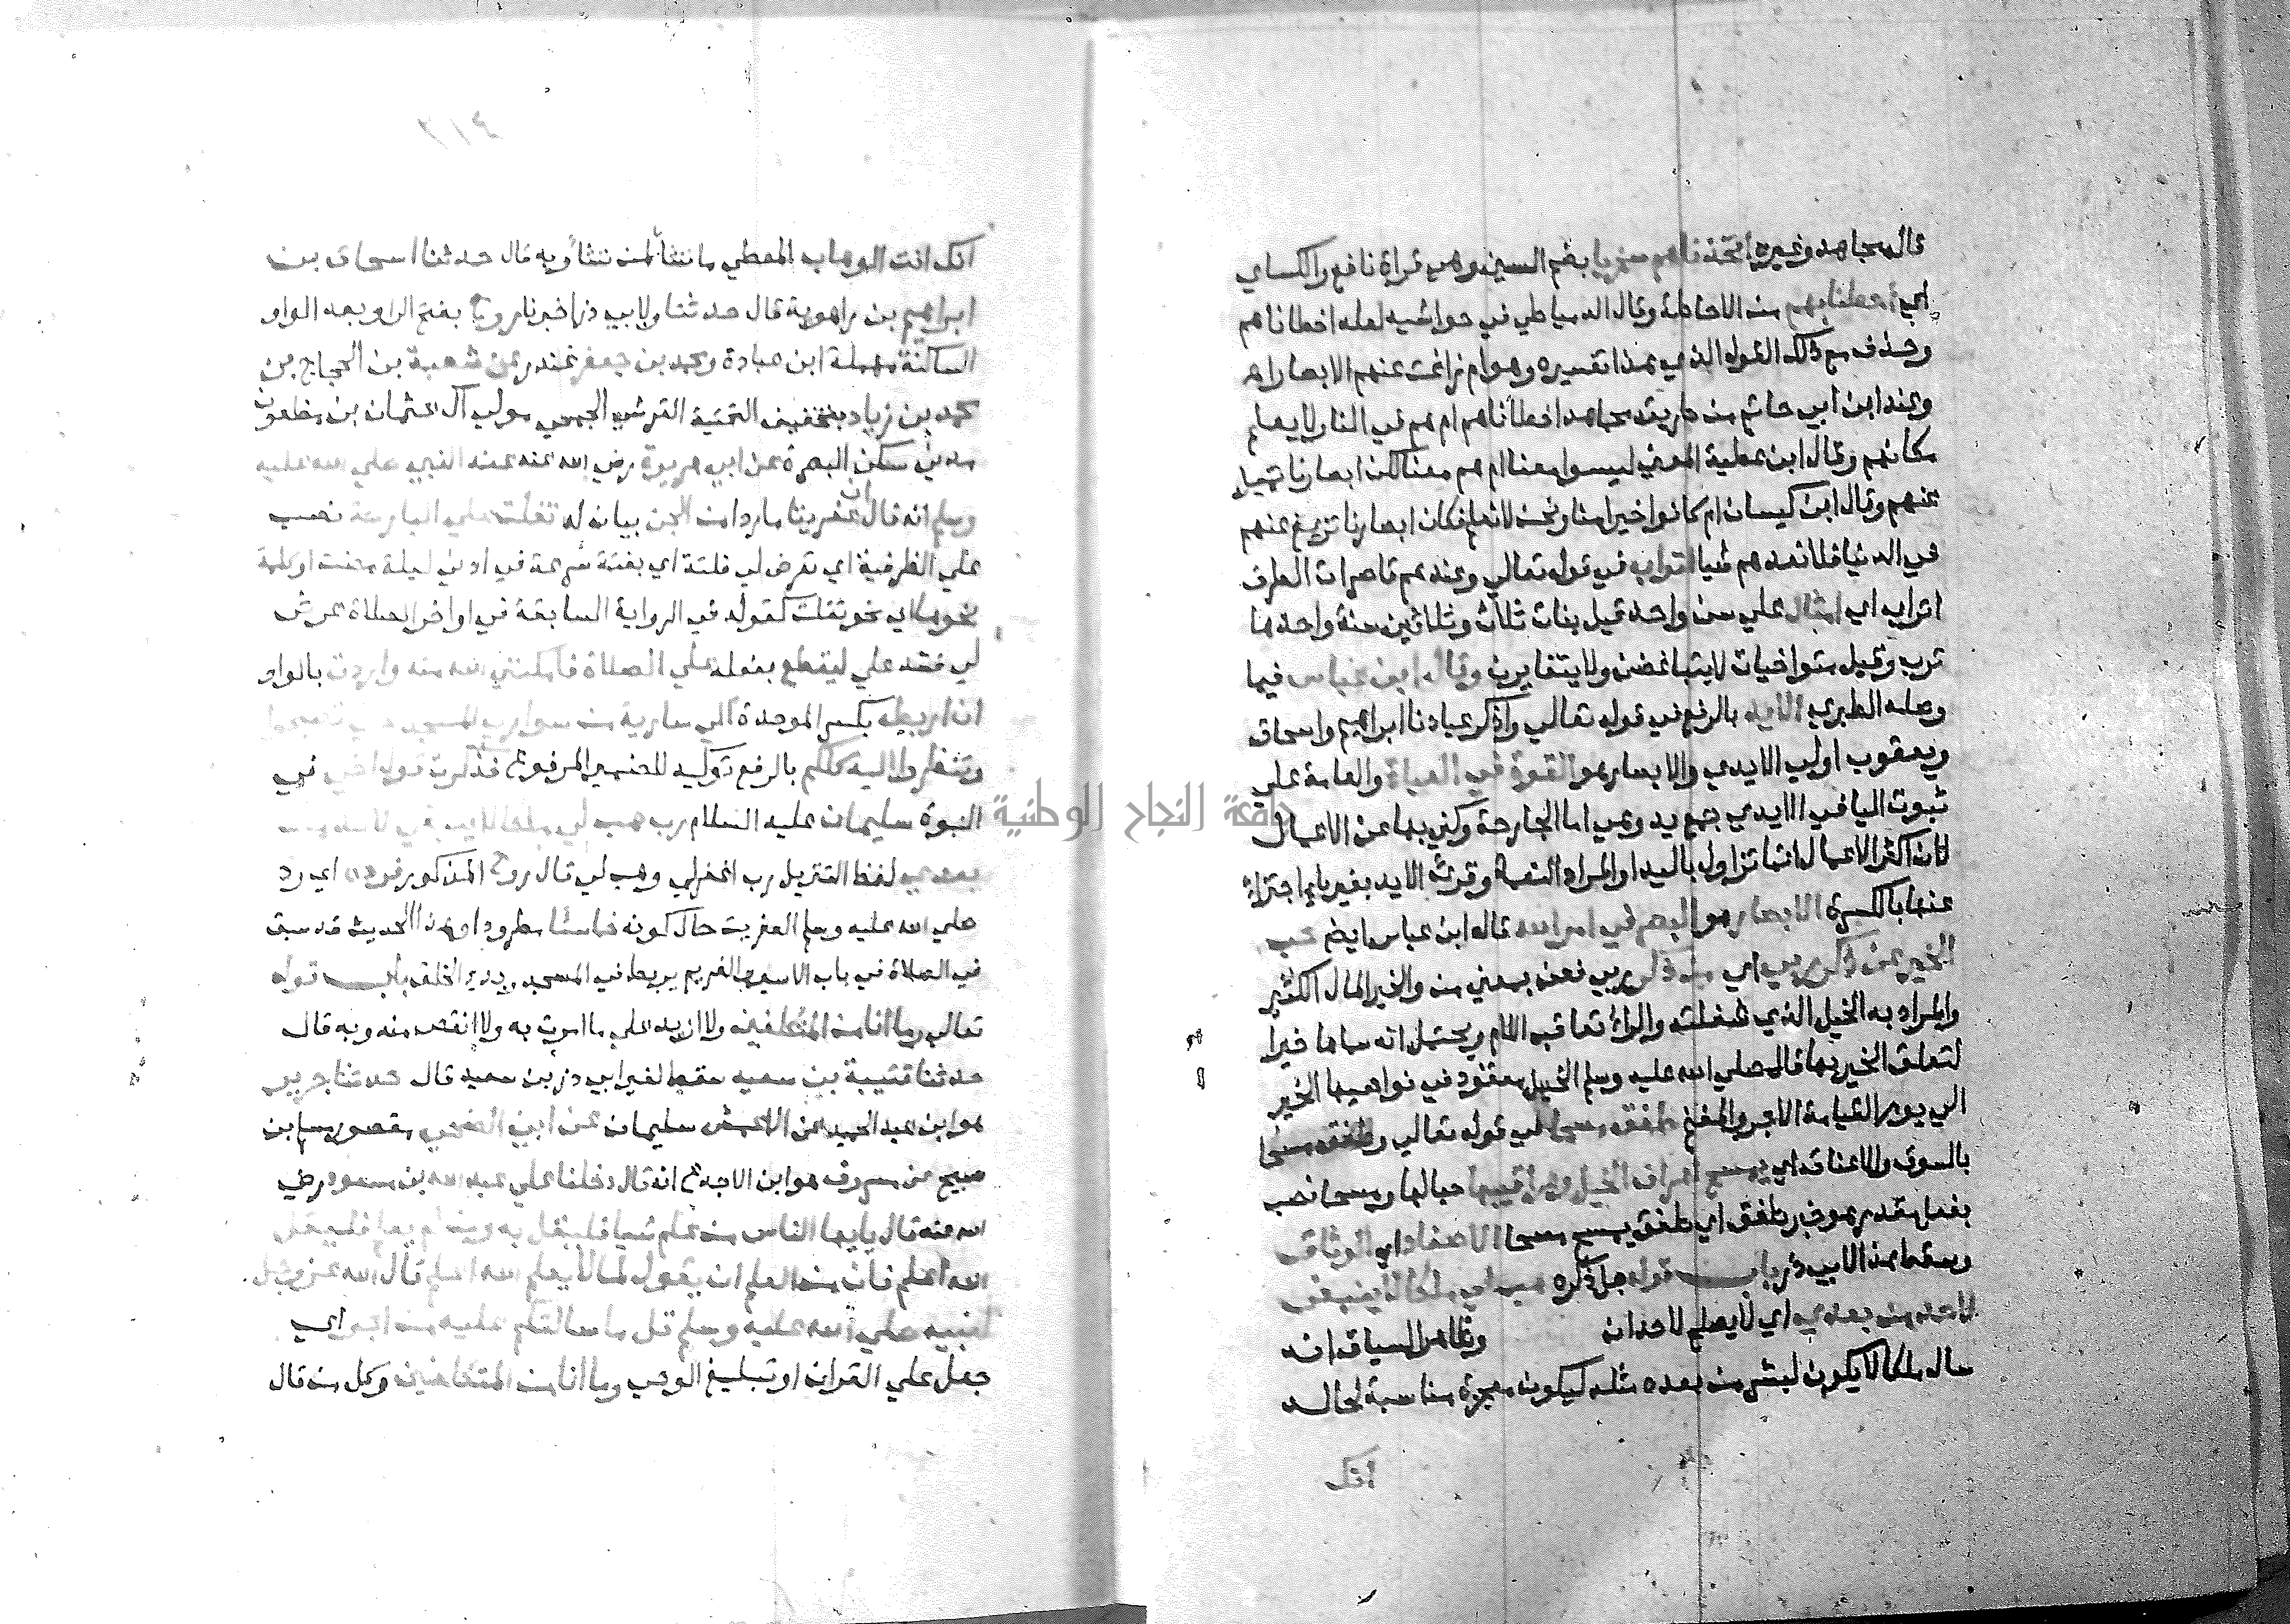 قاله مجاهد وغيره اتخذناهم سخريا بضم السين وهي قراة نافع والكساي
اي احطنا بهم من الاحاطة وقال الدمياطي في حواشيه لعله اخطاناهم
وحذف مع ذلك القول الذي هذا تفسيره وهو ام زاغت عنهم الابصار اه
وعند ابن ابي حاتم من طريق مجاهد اخطاناهم ام هم في النار لا يعلم
مكانهم وقال ابن عطية المعني ليسوا معنا ام هم معنا لكن ابصارنا تميل
عنهم وقال ابن كيسان ام كانوا خيرا منا ونحن لا نعلم فكان ابصارنا تزيغ عنهم
في الدنيا فلا نعدهم شيا اتراب في قوله تعالي وعندهم قاصرات الطرف
اتراب اي امثال علي سن واحد قيل بنات ثلاث وثلاثين سنة واحدها
ترب وقيل متواخيات لا يتباغضن ولا يتغايرن وقال ابن عباس فيما
وصله الطبري الايد بالرفع في قوله تعالي واذكر عبادنا ابراهيم واسحاق
ويعقوب اولي الايدي والابصار هو القوة في العبادة والعامة علي
ثبوت اليا في الايدي جمع يد وهي اما الجارحة وكني بها عن الاعمال
لان اكثر الاعمال انما تزاول باليد او المراد النعمة وقرئ الايد بغير يا اجتزاة
عنها بالكسرة الابصار هو البصر في امر الله قاله ابن عباس ايضم حب
الخير عن ذكر ربي اي من ذكر ربي فعن بمعني من والخير المال الكثير
والمراد به الخيل الذي شغلته والراء تعاقب اللام ويحتمل انه سماها خيرا
لتعلق الخير بها قال صلي الله عليه وسلم الخيل معقود في نواصيها الخير
الي يوم القيامة الاجر والمغنم طفق مسحا في قوله تعالي وطفق مسحا
بالسوق والاعناق اي يمسح اعراف الخيل وعراقيبها حبالها ومسحا نصب
بفعل مقدر هو خبر طفق اي طفق يمسح مسحا الاصفاد اي الوثاق
وسقط هذا لابي ذر باب قوله جل ذكره هب لي ملكا لا ينبغي
لاحد من بعدي اي لا يصلح لاحد ان وظاهر السياق انه
سال ملكا لا يكون لبشر من بعده مثله ليكون معجزة مناسبة لحاله
انك
٢١٤
انك انت الوهاب المعطي ما تشا لمن تشا وبه قال حدثنا اسحاق بن
ابراهيم بن راهوية قال حدثنا ولابي ذر اخبرنا روح بفتح الرا وبعد الواو
الساكنة مهملة ابن عبادة ومحمد بن جعفر غندر عن شعبة بن الحجاج عن
محمد بن زياد بتخفيف التحتية القرشي الجمحي مولي آل عثمان بن مظعون
مدني سكن البصرة عن ابي هريرة رضي الله عنه عن النبي صلي الله عليه
وسلم انه قال ان عفريتا ماردا من الجن بيان له تفلت علي البارحة نصب
علي الظرفية اي تعرض لي فلتة اي بغتة سرعة في ادني ليلة مضت او كلمة
نحوها اي نحو تفلت كقوله في الرواية السابقة في اواخر الصلاة عرض
لي فشد علي ليقطع بفعله علي الصلاة فامكنني الله منه واردت بالواو
ان اربطه بكسر الموحدة الي سارية من سواري المسجد حتي تصبحوا
وتنظروا اليه كلكم بالرفع توكيد للضمير المرفوع فذكرت قول اخي في
النبوة سليمان عليه السلام رب هب لي ملكا لا ينبغي لاحد من
بعدي لفظ التنزيل رب اغفر لي وهب لي قال روح المذكور فرده اي رد
صلي الله عليه وسلم العفريت حال كونه خاسئا مطرودا وهذا الحديث قد سبق
في الصلاة في باب الاسير او الغريم يربط في المسجد وبدء الخلق باب قوله
تعالي وما انا من المتكلفين ولا ازيد علي ما امرت به ولا انقص منه وبه قال
حدثنا قتيبة بن سعيد سقط لغير ابي ذر بن سعيد قال حدثنا جرير
هو ابن عبد الحميد عن الاعمش سليمان عن ابي الضحي مقصور مسلم بن
صبيح عن مسروق هو ابن الاجدع انه قال دخلنا علي عبد الله بن مسعود رضي
الله عنه قال يايها الناس من علم شيا فليقل به ومن لم يعلم فليقل
الله اعلم فان من العلم ان يقول لما لا يعلم الله اعلم قال الله عز وجل
لنبيه صلي الله عليه وسلم قل ما اسالكم عليه من اجر اي
جعل علي القران او تبليغ الوحي وما انا من المتكلفين وكل من قال
جامعة النجاح الوطنية